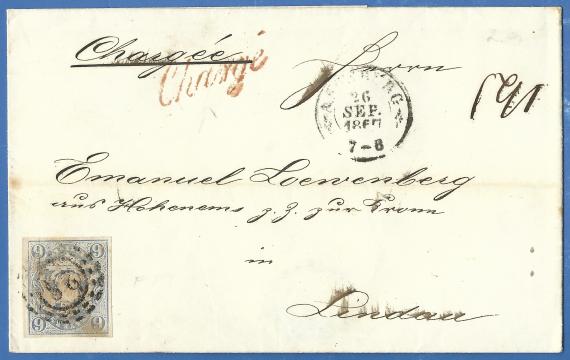 Chargée
Chargé
Herrn
AUGSBURG
26
SEP.
1867
7-8
Emanuel Loewenberg
aus Hohenems z. Z. zur Krone
in
Lindau
9 9
9 9